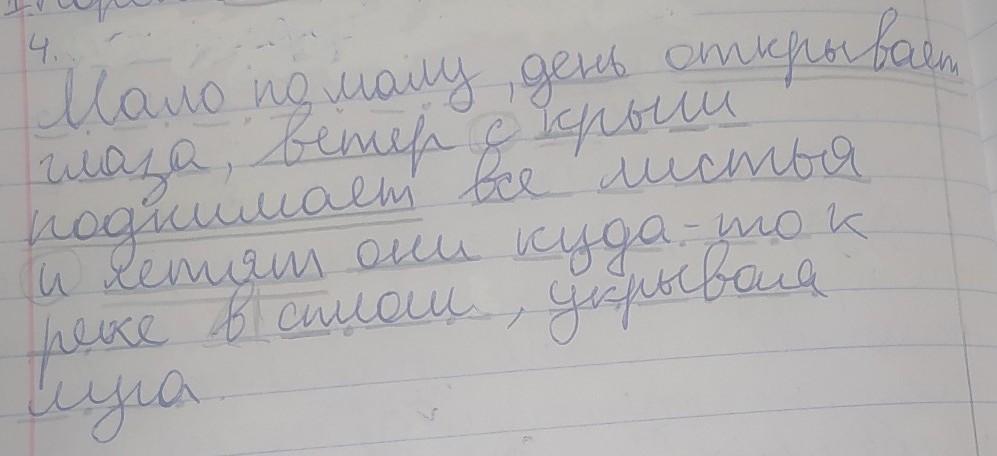 4.
Мало помалу, день открывает
глаза, ветер с крыш
поднимает все листья
и летят они куда-то к
реке в стаи, укрывая
луга